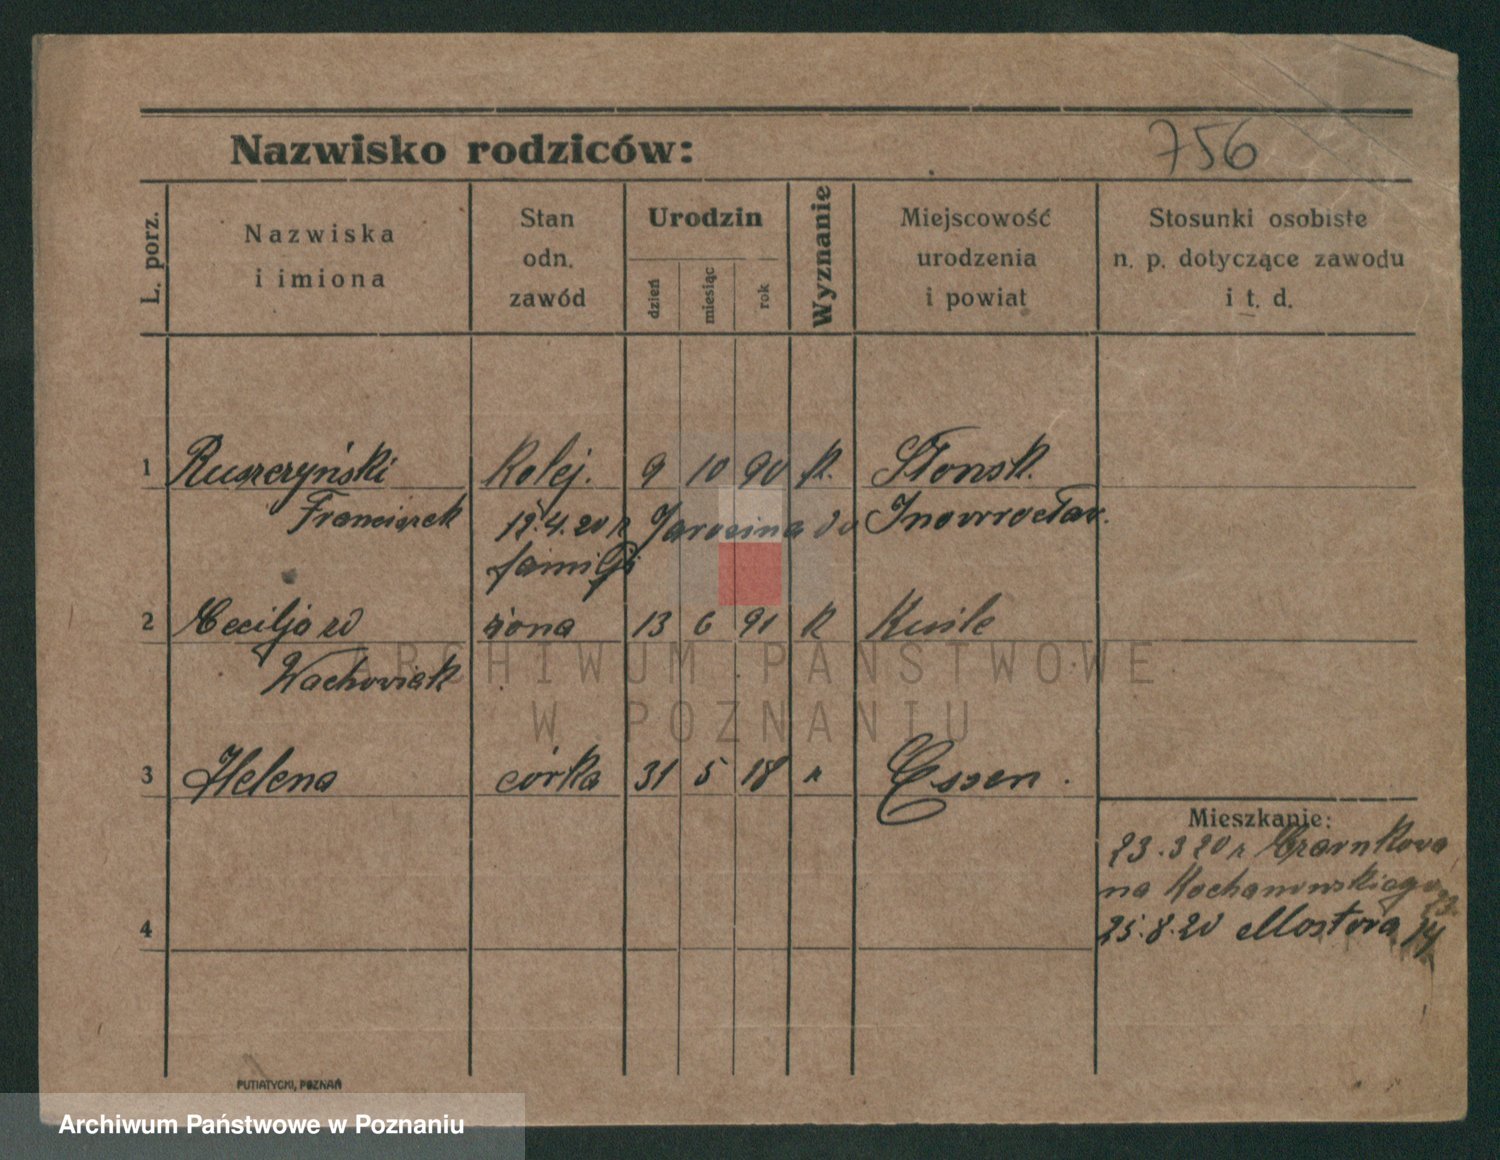 Nazwisko rodziców:
756
L. porz.
Nazwiska
i imiona
Stan
odn.
zawód
Urodzin
dzień
miesiąc
rok
Wyznanie
Miejscowość
urodzenia
i powiat
Stosunki osobiste
n. p. dotyczące zawodu
i t. d.
1 Ruszczyński Kolej. 9 10 90 k. Słonsk.
Franciszek 12.4.20 z Jarocina do Inowrocław.
familji
2 Cecilja zd żona 13 6 91 k
Wachowiak
3 Helena córka 31 5 18 k Essen.
Mieszkanie:
23.3 20 z Czarnkowa
na Kochanowskiego 23.
25.8.20 Mostowa 14
4
PUTIATYCKI, POZNAŃ
ARCHIWUM PAŃSTWOWE
W POZNANIU
Archiwum Państwowe w Poznaniu